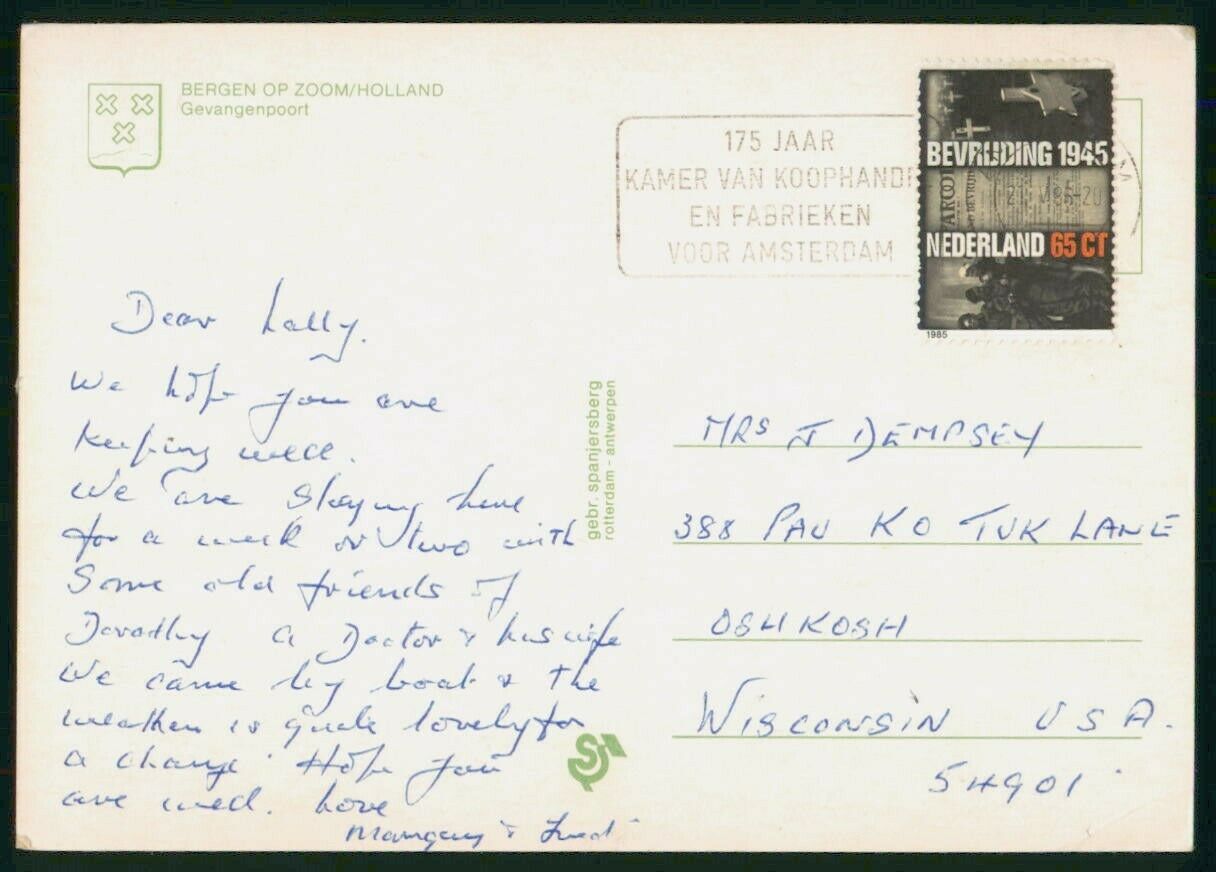 BERGEN OP ZOOM/HOLLAND
Gevangenpoort
175 JAAR
KAMER VAN KOOPHANDE
EN FABRIEKEN
VOOR AMSTERDAM
BEVRIJDING 1945
NEDERLAND 65 CT
1985
Dear Lally.
We hope you are
keeping well.
We are staying here
for a week or two with
some old friends of
Dorothy a Doctor & his wife
We came by boat & the
weather is quite lovely for
a change. Hope you
are well. Love
&
gebr. spanjersberg
rotterdam - antwerpen
MRS J DEMPSEY
388 PAU KO TUK LANE
OSHKOSH
WISCONSIN USA.
54901